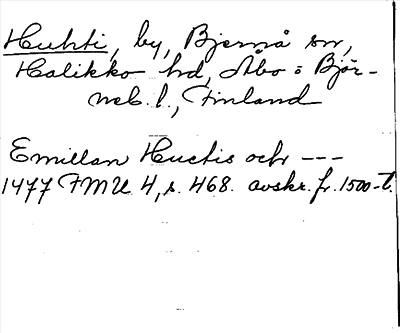 Huhti, by, Bjernå sn,
Halikko hd, Åbo o Björ-
neb. l., Finland
Emillan Huctis och ---
1477 FMU 4, s. 468. avskr. fr. 1500-t.